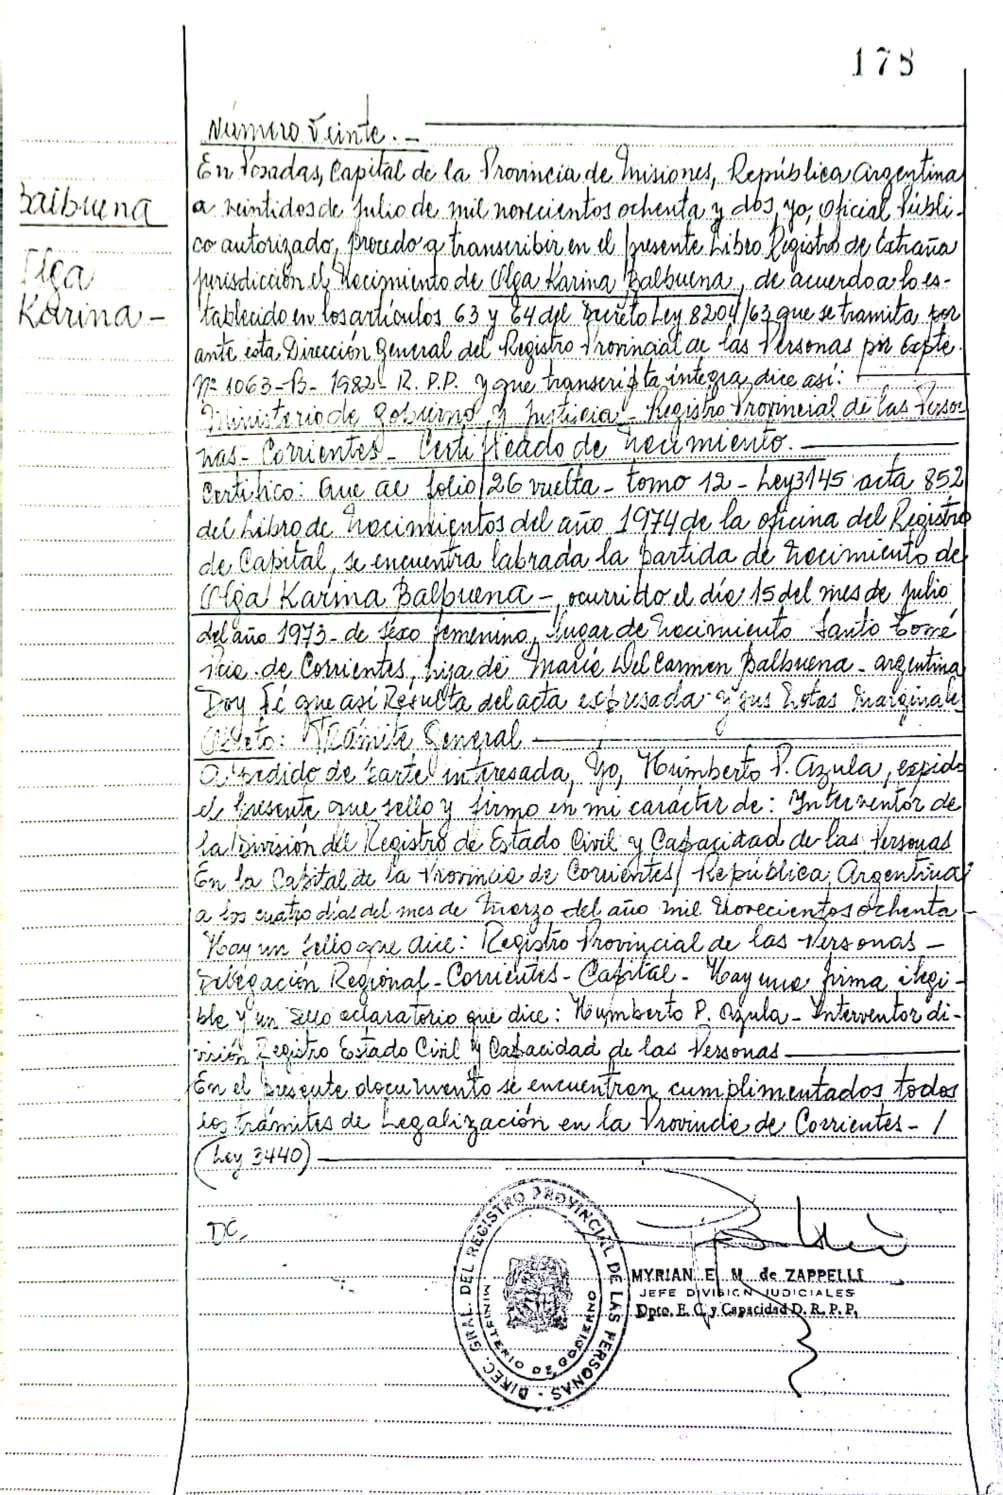 178
Número Veinte. _
En Posadas, Capital de la Provincia de Misiones, República Argentina
Balbuena
a veintidos de Julio de mil novecientos ochenta y dos, yo, Oficial Públi-
co autorizado, procedo a transcribir en el presente Libro Registro de Extraña
Olga
jurisdicción el Nacimiento de Olga Karina Balbuena, de acuerdo a lo es-
Karina -
tablecido en los artículos 63 y 64 del Decreto Ley 8204/63 que se tramita por
ante esta Dirección General del Registro Provincial de las Personas por Expte.
Nº 1063-B-1982- R.P.P. y que transcripta íntegra, dice así:
Ministerio de Gobierno y Justicia - Registro Provincial de las Perso
nas - Corrientes - Certificado de Nacimiento.
Certifico: Que al folio 126 vuelta - tomo 12 - Ley 3145 acta 852
del Libro de Nacimientos del año 1974 de la oficina del Registro
de Capital, se encuentra labrada la partida de Nacimiento de
Olga Karina Balbuena -, ocurrido el día 15 del mes de Julio
del año 1973 - de sexo femenino, Lugar de Nacimiento Santo Tomé
Pcia. de Corrientes, hija de María Del Carmen Balbuena - argentina
Doy fé que así Resulta del acta expresada y sus Notas Marginale
Objeto: Trámite General
A Pedido de Parte interesada, Yo, Humberto P. Azula, expido
el Presente que sello y firmo en mi carácter de: Interventor de
la División del Registro de Estado Civil y Capacidad de las Personas
En la Capital de la Provincia de Corrientes, República Argentina
a los cuatro días del mes de Marzo del año mil Novecientos ochenta -
Hay un sello que dice: Registro Provincial de las Personas -
Delegación Regional - Corrientes - Capital - Hay una firma ilegi-
ble y un sello aclaratorio que dice: Humberto P. Azula - Interventor di-
visión Registro Estado Civil y Capacidad de las Personas
En el presente documento se encuentran cumplimentados todos
los trámites de Legalización en la Provincia de Corrientes - /
(Ley 3440)
DC.
DIREC. GRAL. DEL REGISTRO PROVINCIAL DE LAS PERSONAS -
MINISTERIO DE GOBIERNO
MYRIAN E. M. de ZAPPELLI
JEFE DIVISION JUDICIALES
Dpto. E. C. y Capacidad D. R. P. P.